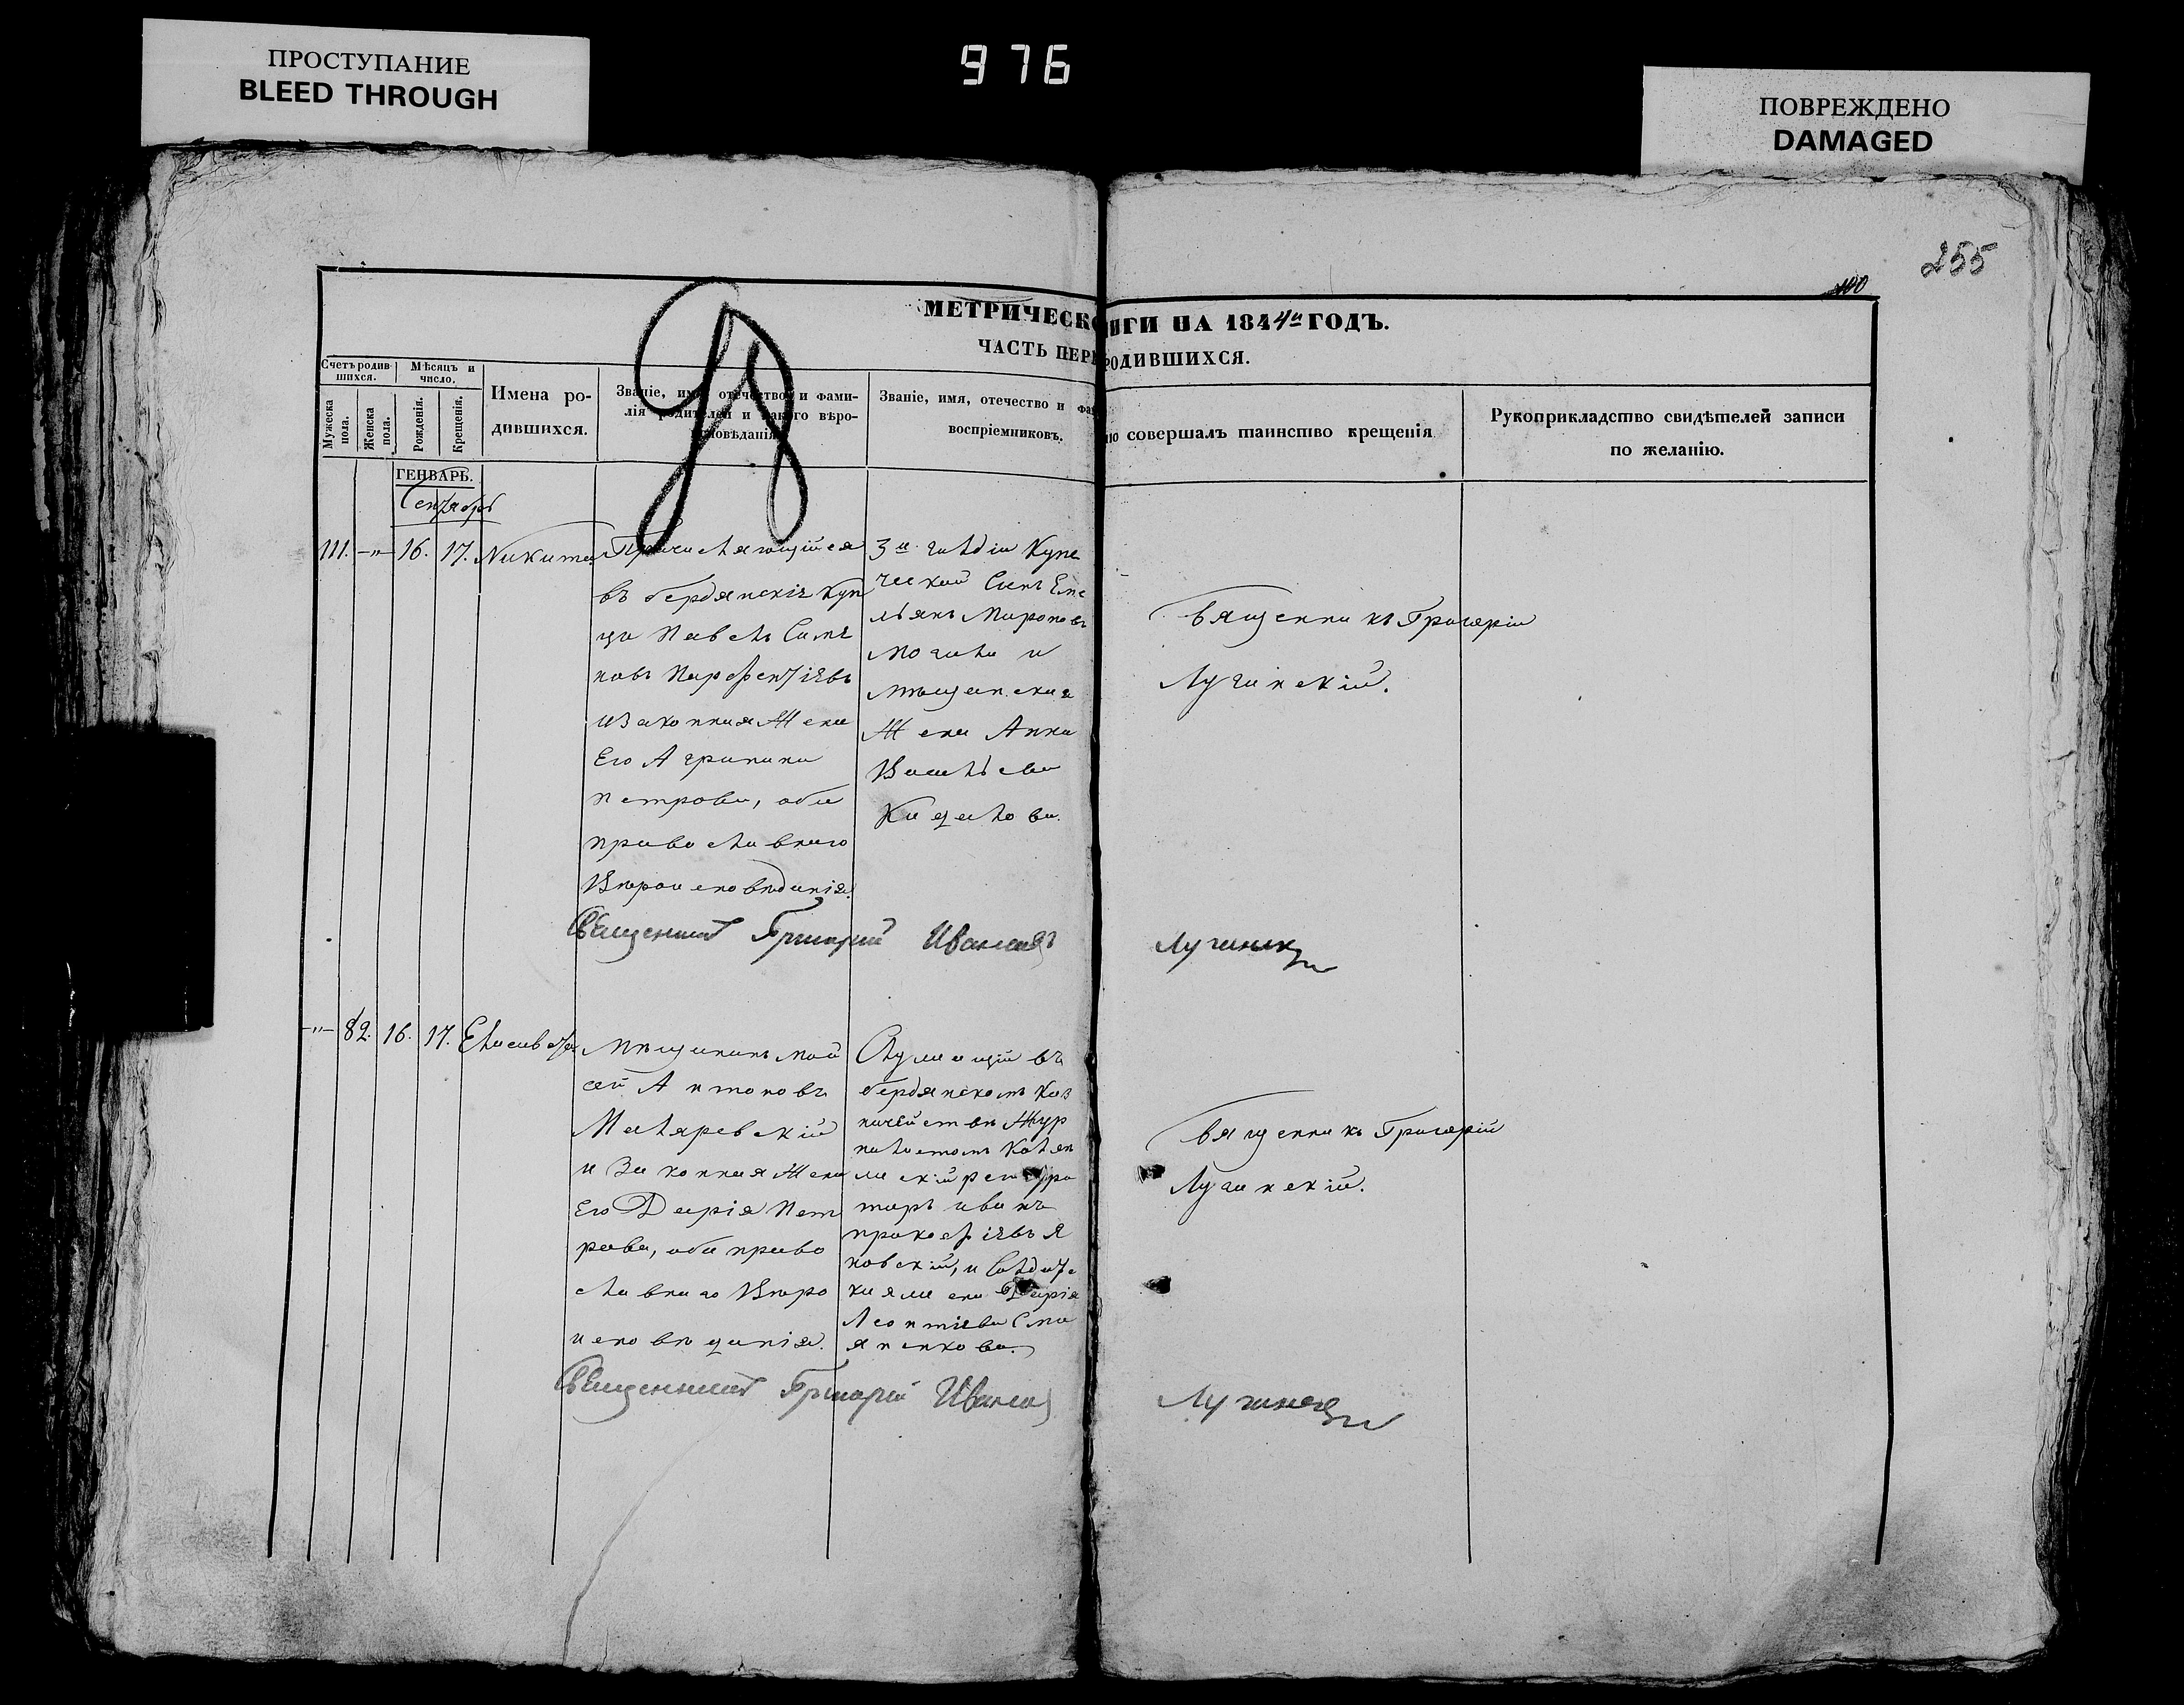 ПРОСТУПАНИЕ
BLEED THROUGH
976
ПОВРЕЖДЕНО
DAMAGED
255
100
МЕТРИЧЕСКО ИГИ НА 1844й ГОДЪ.
ЧАСТЬ ПЕРВ РОДИВШИХСЯ.
Счетъ родив-
шихся.
Мужеска пола.
Женска пола.
Мѣсяцъ и
число.
Рожденія.
Крещенія.
Имена ро-
дившихся.
Званіе, имя, отечество и фами-
лія родителей и какого вѣро-
исповѣданія.
Званіе, имя, отечество и фам
воспріемниковъ.
совершалъ таинство крещенія
Рукоприкладство свидѣтелей записи
по желанію.
ГЕНВАРЬ.
Сентябрь
111. -"- 16. 17. Никита
Причисляющійся
въ бердянскіе куп
цы Павелъ Симе
новъ Парфентіевъ
и законная жена
Его Агрипина
Петрова, оба
православнаго
Вѣроисповѣданія.
3й гильдіи Купе
ческой Сынъ Еме
льянъ Мироновъ
Могила и
мѣщанская
Жена Анна
Васильева
Священникъ Григорій
Лучинскій.
Священникъ Григорій Ивановъ Лучинскій
-"- 82. 16. 17. Елисавета
Мѣщанинъ Мой
сей Антоновъ
Маляревскій
и Законная Жена
Его Дарія Пет
рова, оба право
славнаго Вѣро
исповѣданія.
Служащій въ
бердянскомъ Каз
начействѣ Жур
налистомъ Колеж
скій регистра
торъ Иванъ
Прокофіевъ Я
новскій, и Солдатс
кая жена Дарія
Леонтіева
Священникъ Григорій
Лучинскій.
Священникъ Григорій Ивановъ Лучинскій